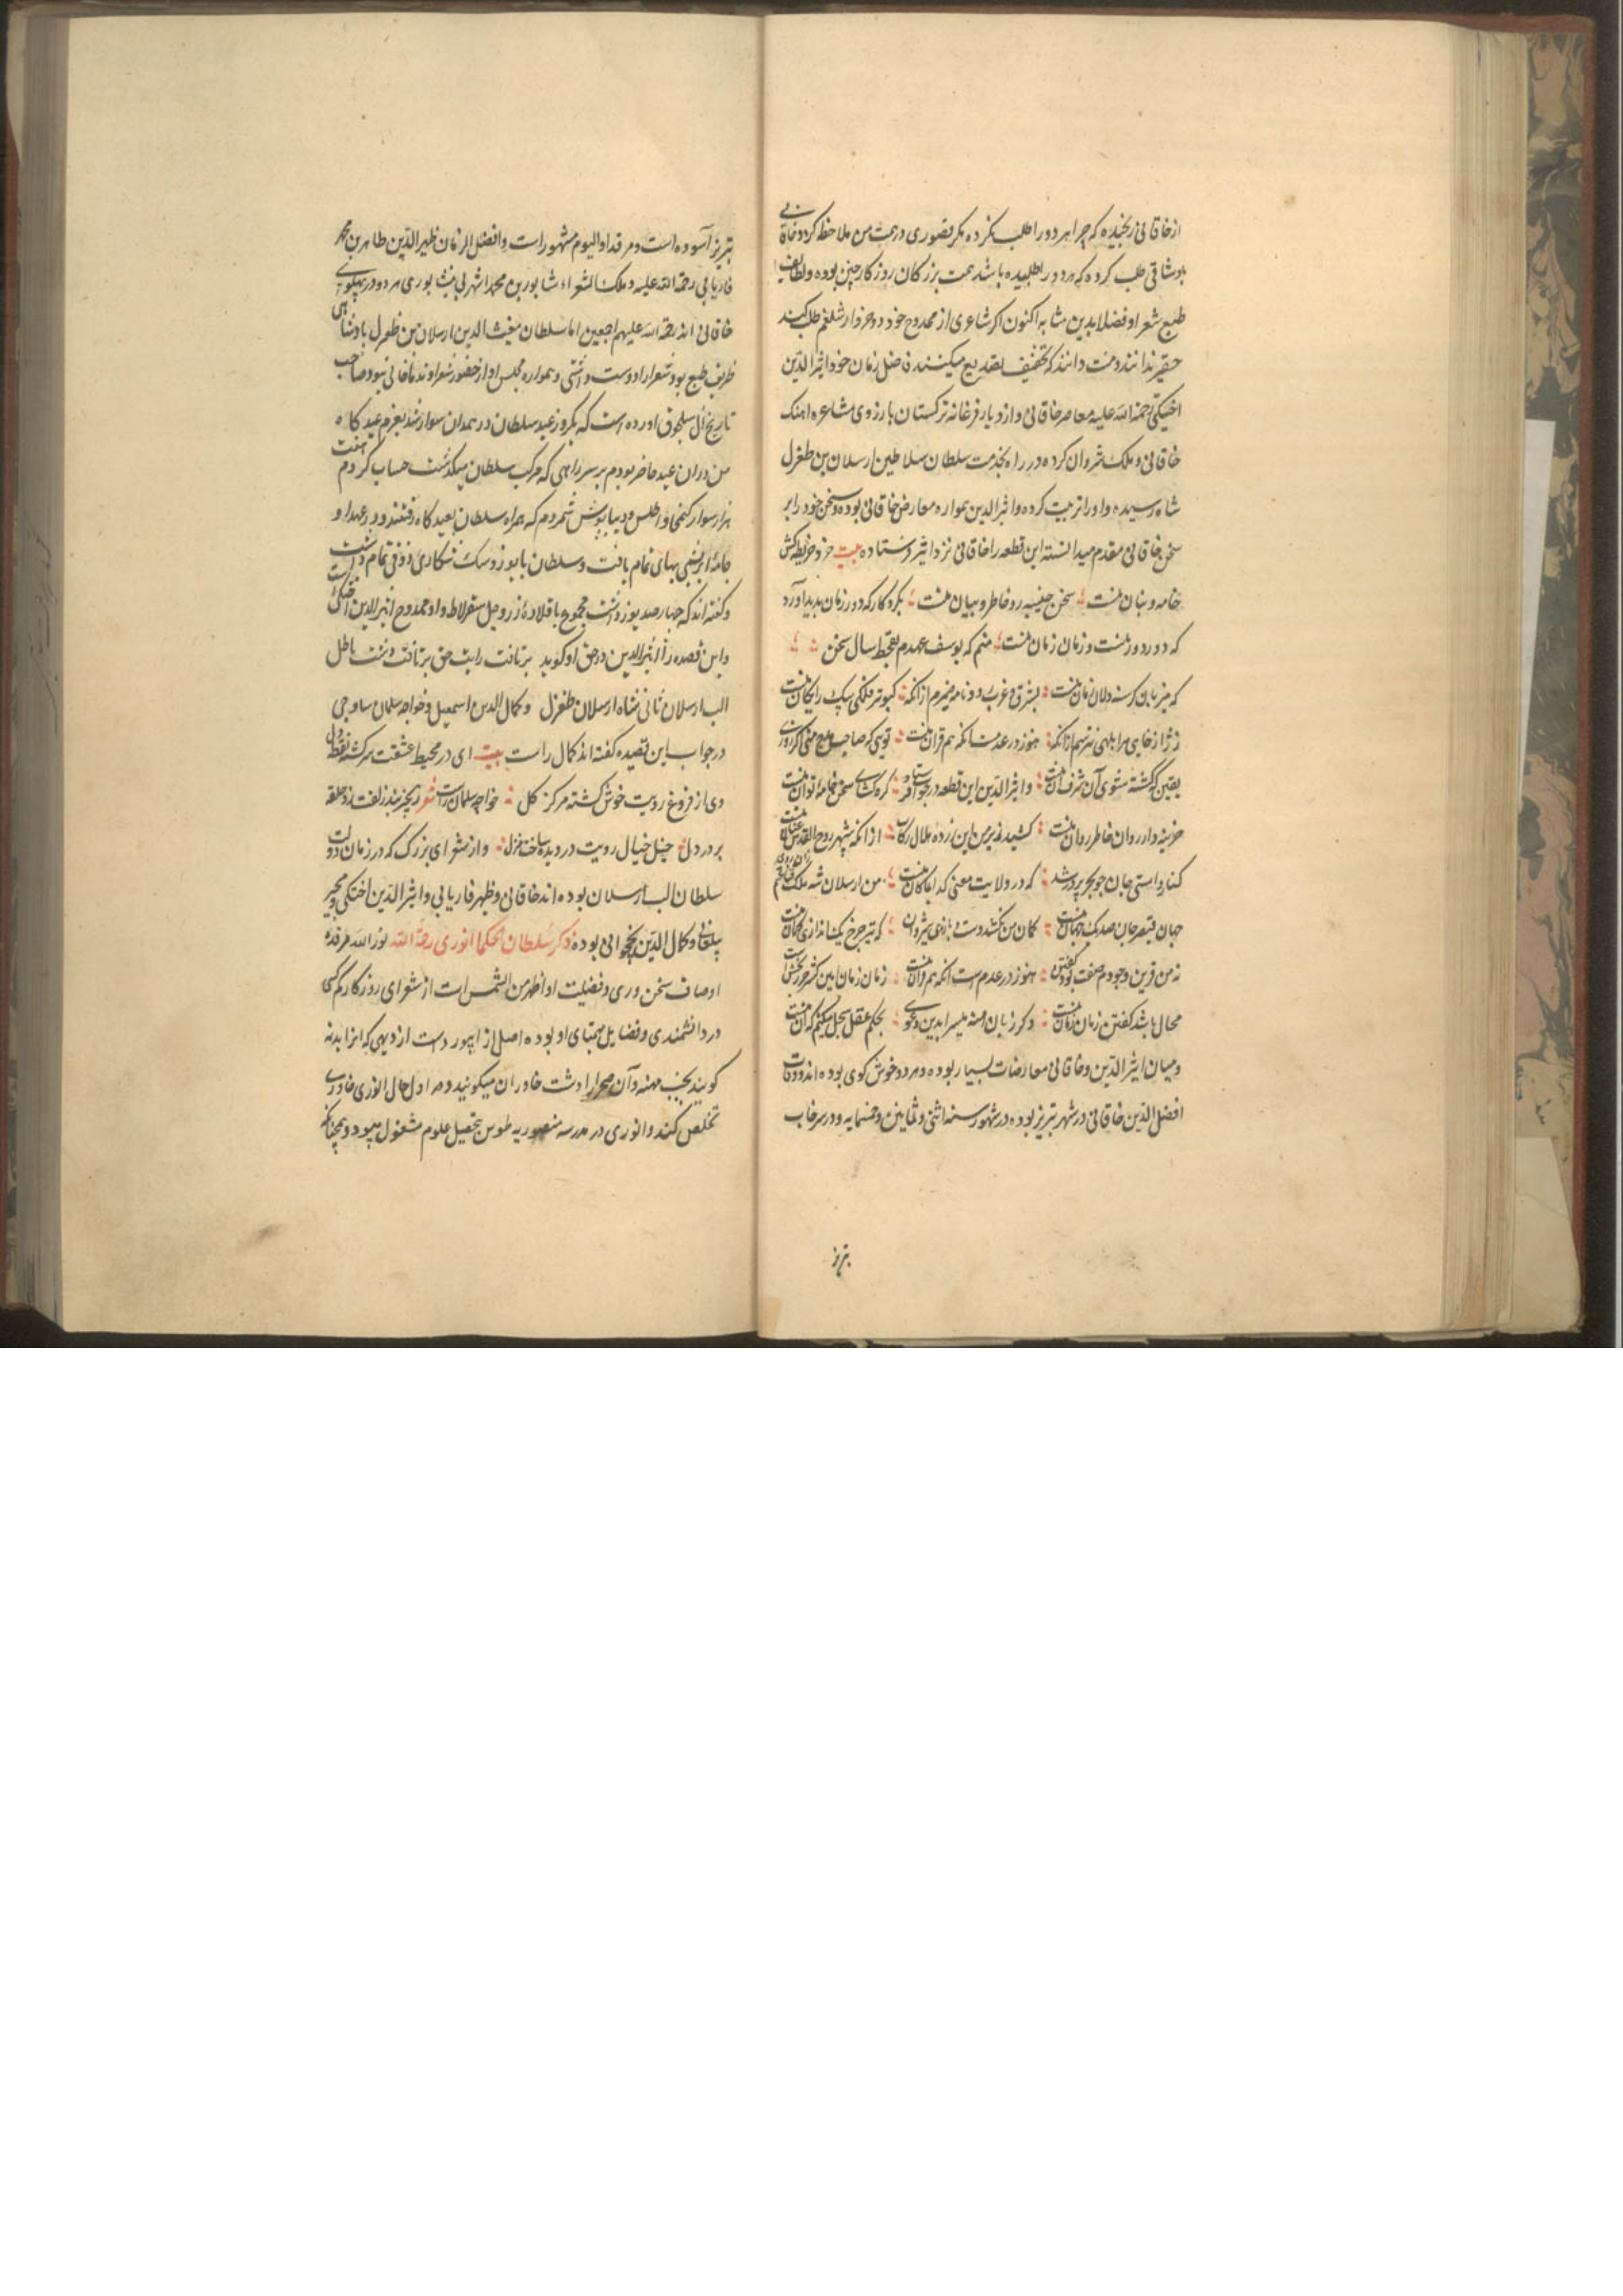 از خاقانی رنجیده که چرا هر دو را طلب نکرده مگر قصوری در همت من ملاحظه کرد و خاقانی
باوشاقی طلب کرده که هر دو را طلبیده باشد همت بزرگان روزگار چنین بوده و لطایف
طبع شعرا و فضلا بدین مثابه اکنون اگر شاعری از ممدوح خود دو خروار شلغم طلب کند
حقیر ندانند و منت دانند که تخفیف تصدیع میکنند فاضل زمان خود اثیر الدین
اخسیکتی رحمة الله علیه معاصر خاقانی و از دیار فرغانه ترکستان بارزوی مشاعره اهنک
خاقانی و ملک شروان کرده در راه بخدمت سلطان سلاطین ارسلان بن طغرل
شاه رسیده و او را تربیت کرده و اثیر الدین همواره معارض خاقانی بوده و سخن خود را بر
سخن خاقانی مقدم میدانسته این قطعه را خاقانی نزد اثیر فرستاده بیت خرد خریطه کش
خامه و بنان منست سخن جنیبه رو خاطر و بیان منست بکردکار که دور زمان بدید آورد
که دور دور منست و زمان زمان منست منم که یوسف عهدم بقحط سال سخن
که میزبان کرسنه دلان زبان منست بشرق و غرب رود نامه ضمیرم از آنکه کبوتر فلکی پیک رایکان منست
ز ژاژخایی هر ابلهی نترسم از آنکه هنوز در عدمست آنکه هم قران منست تویی که صاحب
یقین که کشته شوی آن شرف منست و اثیر الدین این قطعه در جواب فرستاد کره کشای سخن خامه توان منست
خزینه دار روان خاطر روان منست کشید زیر من این زرده هلال رکاب از آنکه شهپر روح القدس عنان منست
که در ولایت معنی کدا کان منست من ارسلان شه ملک
جهان قیصر جان صد یک جهان منست کمان من نکشد دست و بازوی شروان که تیر چرخ یک اندازی از کمان منست
نه من قرین وجودم صفت بود کفتن هنوز در عدم است آنکه هم قران منست زمان زمان
محال باشد کفتن زمان زمان منست بحکم عقل سجل میکنم که آن منست
و میان اثیر الدین و خاقانی معارضات بسیار بوده و هر دو خوش کوی بوده اند و وفات
افضل الدین خاقانی در شهر تبریز بوده در شهور سنه اثنی و ثمانین و خمسمایه و در سرخاب
تبریز
تبریز آسوده است و مرقد او الیوم مشهور است و افضل الزمان ظهیر الدین طاهر بن محمد
فاریابی رحمة الله علیه و ملک الشعراء شاپور بن محمد اشهری نیشابوری هر دو در پهلوی
خاقانی اند رحمة الله علیهم اجمعین اما سلطان مغیث الدین ارسلان بن طغرل بادشاهی
ظریف طبع بود و شعرا را دوست داشتی و همواره مجلس او از حضور شعرا و ندما خالی نبود صاحب
تاریخ آل سلجوق اورده است که یکروز عید سلطان در همدان سوار شد بعزم عید کاه
من دران عید حاضر بودم بر سر راهی که مرکب سلطان میکذشت حساب کردم هفت
هزار سوار کنخا و اطلس و دیباپوش شمردم که همراه سلطان بعید کاه رفتند و در عهد او
جامه ابریشمی بهای تمام یافت و سلطان بایوز و سک شکاری ذوقی تمام داشت
و کفته اند که چهار صد یوز داشت مجموع با قلاده زر و جل سقرلاط و او ممدوح اثیر الدین اخسیکتی است
و این قصده را اثیر الدین در حق او کوید برتافت رایت حق برتافت دست باطل
الب ارسلان ثانی شاه ارسلان طغرل و کمال الدین اسمعیل و خواجه سلمان ساوجی
در جواب این قصیده کفته اند کمال راست بیت ای در محیط عشقت سرکشته نقطه دل
وی از فروغ رویت خوش کشته مرکز کل خواجه سلمان راست شعر زنجیر بند زلفت زد حلقه
بر در دل خیل خیال رویت در دیده ساخت منزل و از شعرای بزرک که در زمان دولت
سلطان الب ارسلان بوده اند خاقانی و ظهیر فاریابی و اثیر الدین اخسیکتی و مجیر
بیلقانی و کمال الدین نخجوانی بوده ذکر سلطان الحکما انوری رحمة الله نور الله مرقده
اوصاف سخن وری و فضیلت او اظهر من الشمس است از شعرای روزکار کم کسی
در دانشمندی و فضایل همتای او بوده اصل از ابیورد است از دیهی که انرا بدنه
کویند بجنب مهنه و آن صحرا را دشت خاوران میکویند و در اول حال انوری خاوری
تخلص کند و انوری در مدرسه منصوریه طوس بتحصیل علوم مشغول میبود و همچنانکه